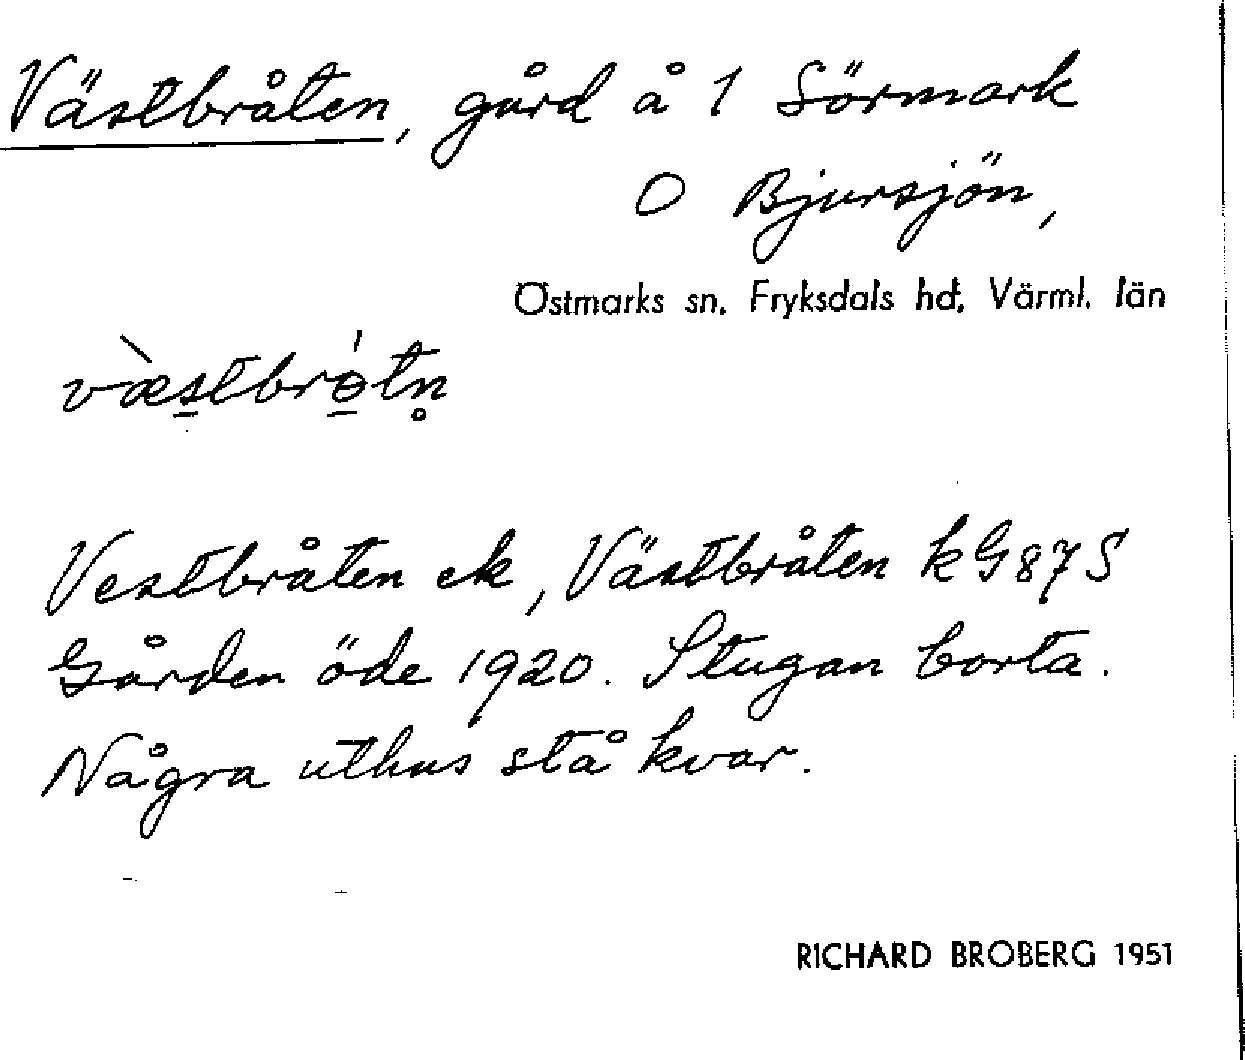 Västbråten, gård å 1 Sörmark
O Bjursjön,
Östmarks sn. Fryksdals hd. Värml. län
væ̀stbrɵ́tn̥
Vestbråten ek, Västbråten kG87S
Gården öde 1920. Stugan borta.
Några uthus stå kvar.
RICHARD BROBERG 1951